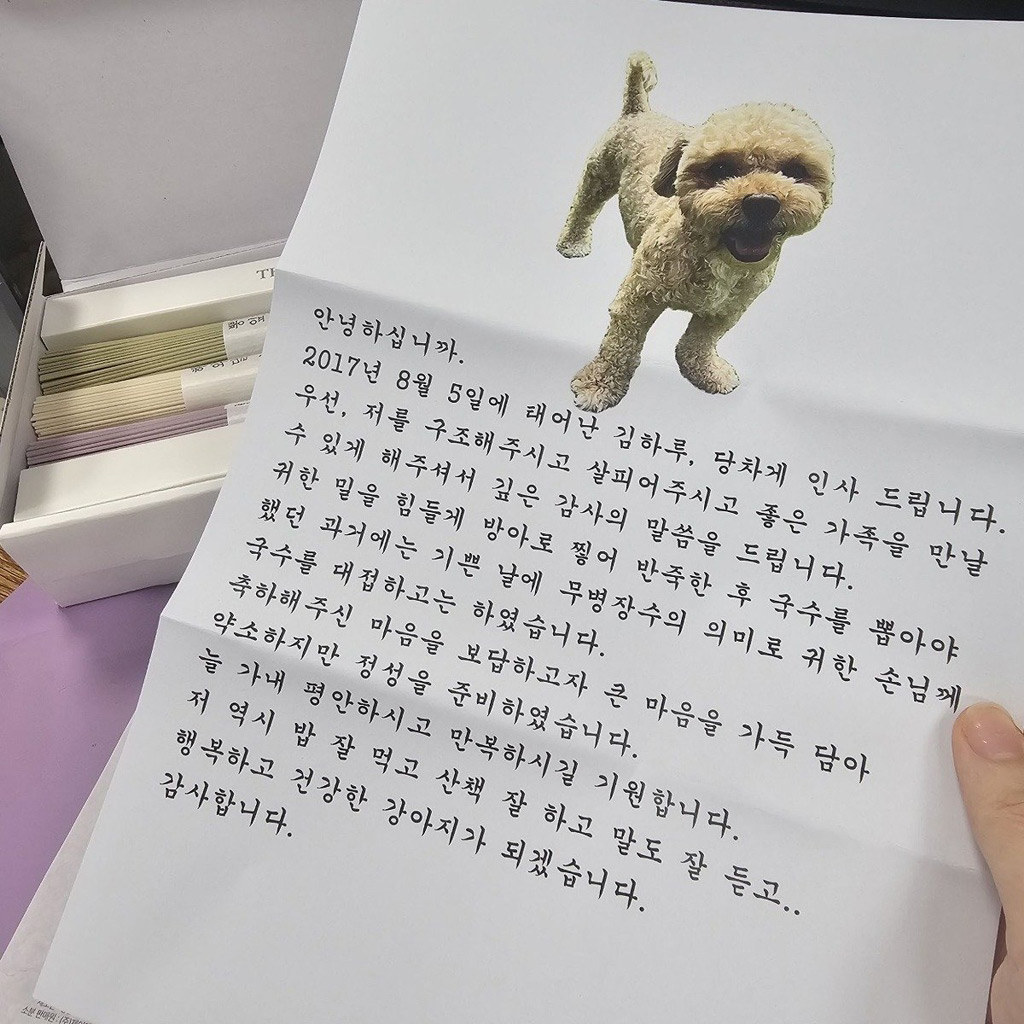 안녕하십니까.
2017년 8월 5일에 태어난 김하루, 당차게 인사 드립니다.
우선, 저를 구조해주시고 살피어주시고 좋은 가족을 만날
수 있게 해주셔서 깊은 감사의 말씀을 드립니다.
귀한 밀을 힘들게 방아로 찧어 반죽한 후 국수를 뽑아야
했던 과거에는 기쁜 날에 무병장수의 의미로 귀한 손님께
국수를 대접하고는 하였습니다.
축하해주신 마음을 보답하고자 큰 마음을 가득 담아
약소하지만 정성을 준비하였습니다.
늘 가내 평안하시고 만복하시길 기원합니다.
저 역시 밥 잘 먹고 산책 잘 하고 말도 잘 듣고..
행복하고 건강한 강아지가 되겠습니다.
감사합니다.
TH
소분 판매원 : (주)